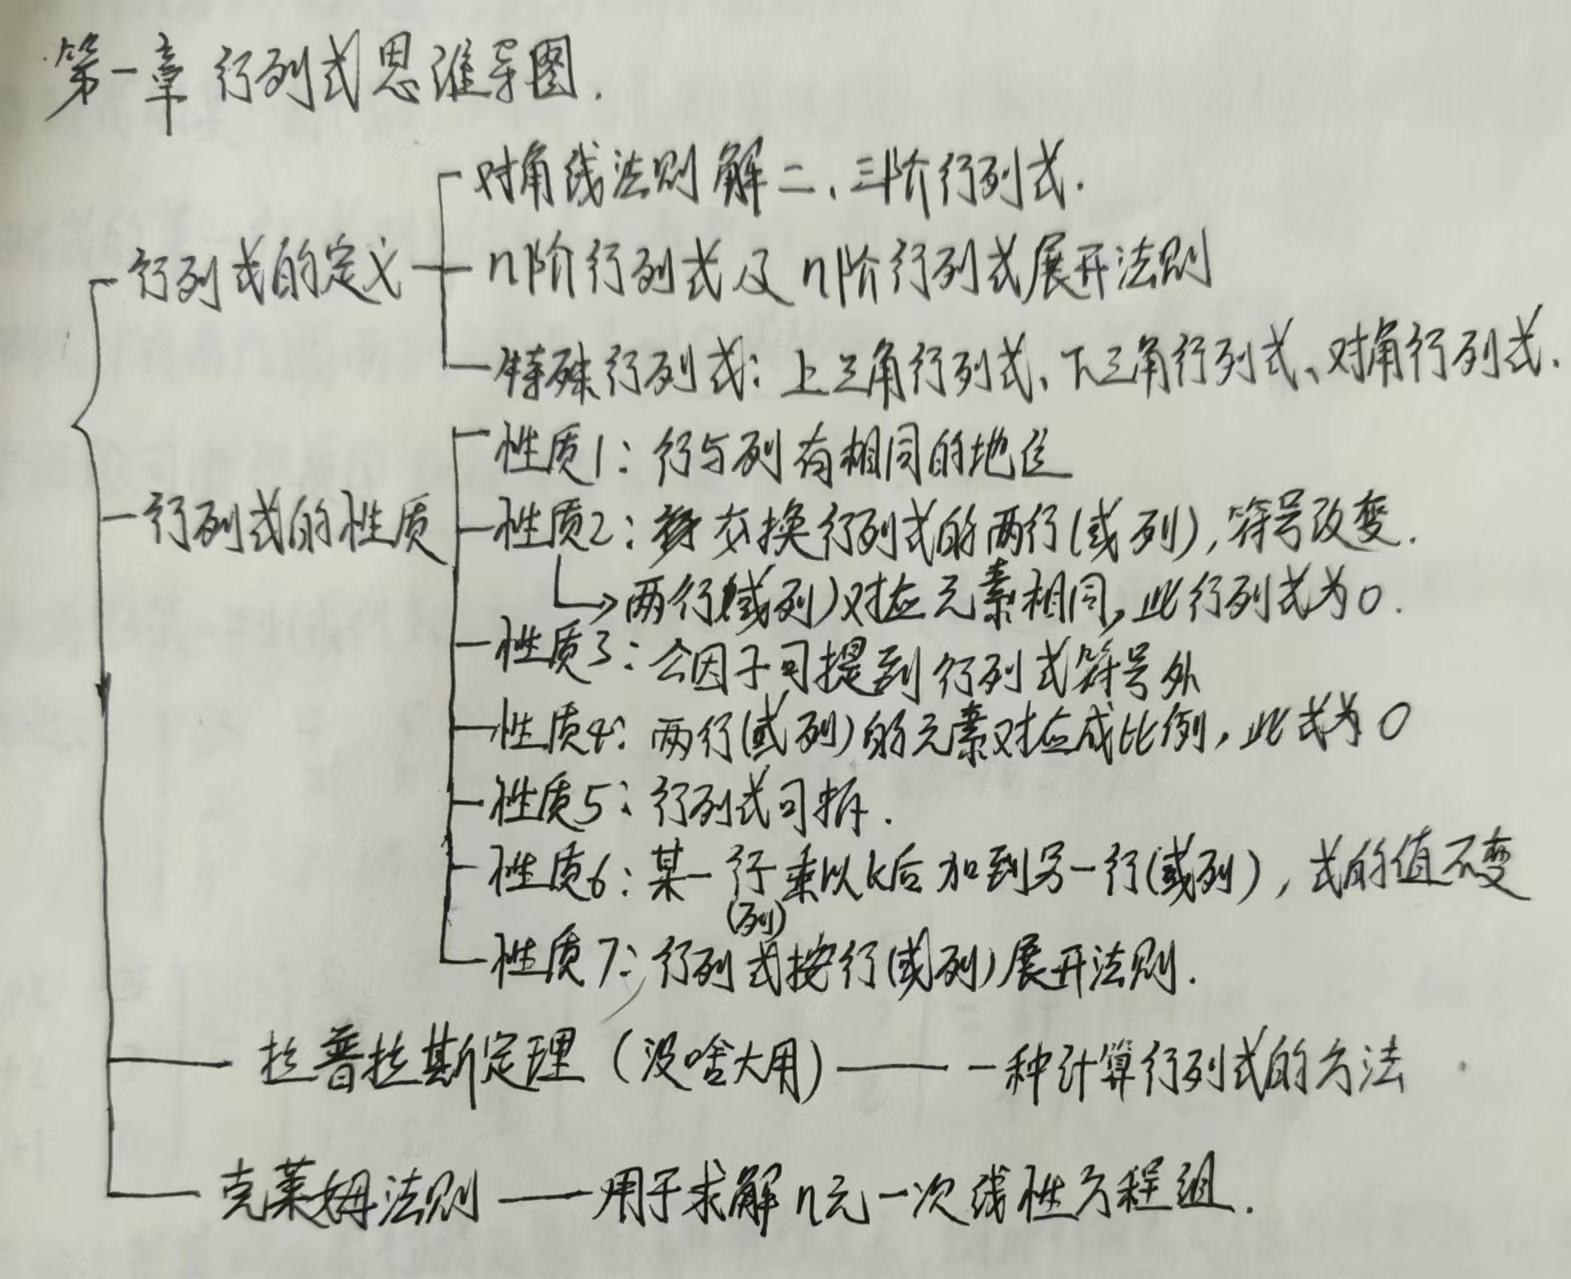 第一章 行列式思维导图.
对角线法则 解二、三阶行列式.
行列式的定义
n阶行列式及n阶行列式展开法则
特殊行列式：上三角行列式、下三角行列式、对角行列式.
性质1：行与列有相同的地位
行列式的性质
性质2：交换行列式的两行(或列),符号改变.
两行(或列)对应元素相同,此行列式为0.
性质3：公因子可提到行列式符号外
性质4：两行(或列)的元素对应成比例,此式为0
性质5：行列式可拆.
性质6：某一行(列)乘以k后加到另一行(或列),式的值不变
性质7：行列式按行(或列)展开法则.
拉普拉斯定理(没啥大用)——一种计算行列式的方法
克莱姆法则——用于求解n元一次线性方程组.